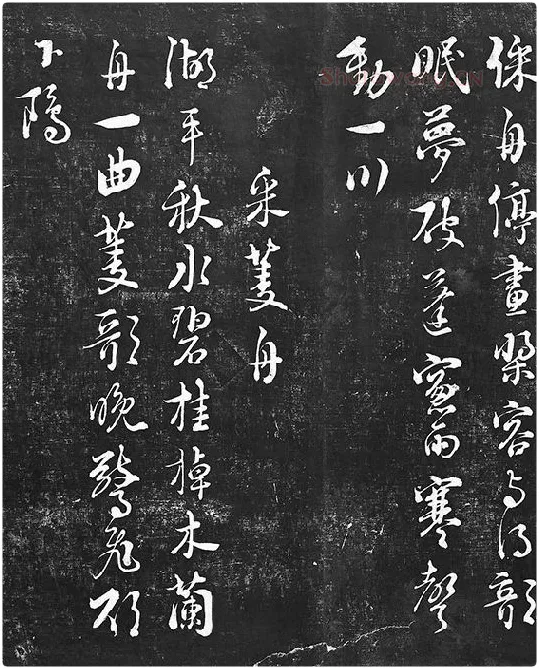 綵舟停畫槳容与得欹
眠夢破蓬窻雨寒聲
動一川
采菱舟
湖平秋水碧桂棹木蘭
舟一曲菱歌晚驚飛欲
下鷗